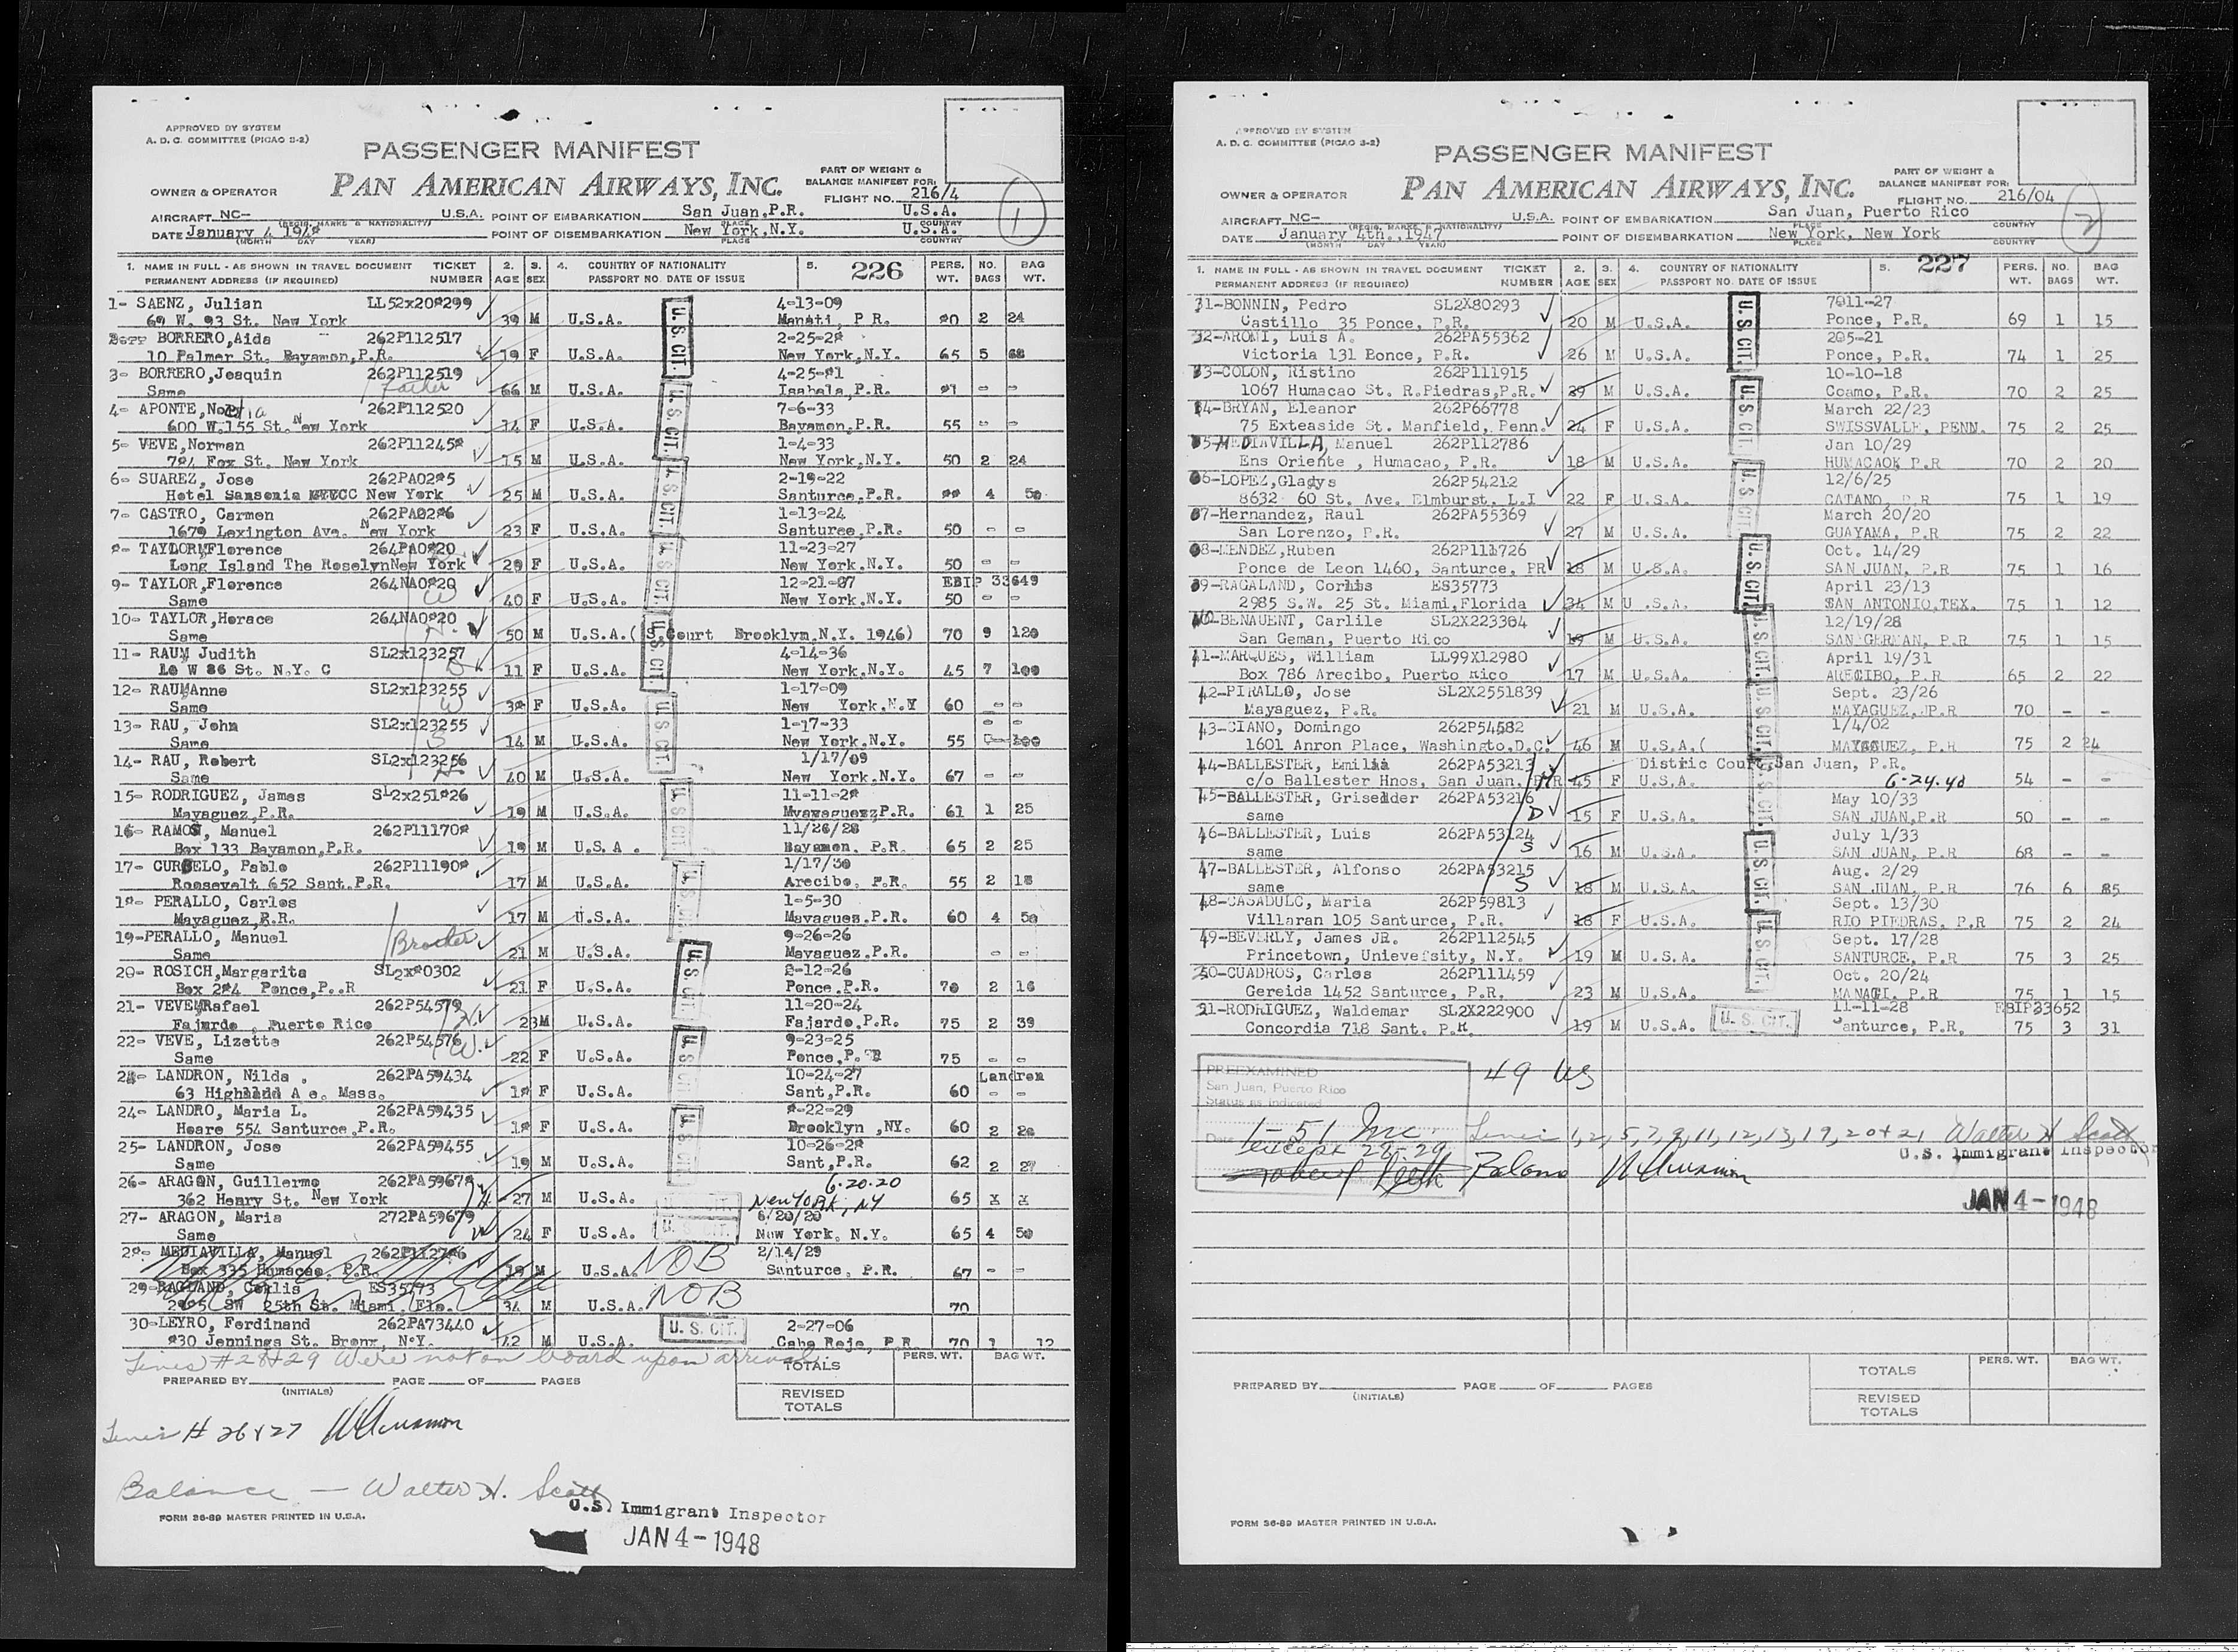 APPROVED BY SYSTEM
A. D. C. COMMITTEE (PICAO S-2)
PASSENGER MANIFEST
PAN AMERICAN AIRWAYS, INC.
PART OF WEIGHT &
BALANCE MANIFEST FOR:
FLIGHT NO. 216/4
1
OWNER & OPERATOR
AIRCRAFT NC- U.S.A. POINT OF EMBARKATION San Juan,P.R. U.S.A.
(REGIS. MARKS & NATIONALITY) PLACE COUNTRY
DATE January 4 1948 POINT OF DISEMBARKATION New York,N.Y. U.S.A.
(MONTH DAY YEAR) PLACE COUNTRY
1. NAME IN FULL - AS SHOWN IN TRAVEL DOCUMENT TICKET 2. 3. 4. COUNTRY OF NATIONALITY 5. 226 PERS. NO. BAG
PERMANENT ADDRESS (IF REQUIRED) NUMBER AGE SEX PASSPORT NO. DATE OF ISSUE WT. BAGS WT.
1- SAENZ, Julian LL52x208299 4-13-09
69 W. 93 St. New York 39 M U.S.A. Manati, P R. 80 2 24
BORRERO,Aida 262P112517 2-25-28
10 Palmer St. Bayamon,P.R. 19 F U.S.A. New York,N.Y. 65 5 68
3- BORRERO,Joaquin 262P112519 4-25-81
Same Father 66 M U.S.A. Isabela,P.R. 81 - -
4- APONTE, 262P112520 7-6-33
600 W.155 St. New York 14 F U.S.A. Bayamon,P.R. 55 - -
5- VEVE,Norman 262P112458 1-4-33
784 Fox St. New York 15 M U.S.A. New York,N.Y. 50 2 24
6- SUAREZ, Jose 262PA0285 2-19-22
Hotel Sansonia New York 25 M U.S.A. Santurce,P.R. 88 4 50
7- CASTRO, Carmen 262PA0286 1-13-24
1679 Lexington Ave. New York 23 F U.S.A. Santurce,P.R. 50 - -
8- TAYLOR,Florence 264PA0820 11-23-27
Long Island The RoselynNew York 20 F U.S.A. New York.N.Y. 50 - -
9- TAYLOR,Florence 264NA0820 12-21-07 EBIP 33649
Same W 40 F U.S.A. New York.N.Y. 50 - -
10- TAYLOR,Horace 264NA0820
Same 50 M U.S.A.( S.Court Brooklyn,N.Y. 1946) 70 9 120
11- RAU, Judith SL2x123257 4-14-36
10 W 86 St. N.Y. C 11 F U.S.A. New York,N.Y. 45 7 100
12- RAU,Anne SL2x123255 1-17-09
Same W 38 F U.S.A. New York.N.Y 60 - -
13- RAU, John SL2x123255 1-17-33 - -
Same S 14 M U.S.A. New York.N.Y. 55
14- RAU, Robert SL2x123256 1/17/09
Same 40 M U.S.A. New York.N.Y. 67 - -
15- RODRIGUEZ, James SL2x251826 11-11-28
Mayaguez,P.R. 19 M U.S.A. P.R. 61 1 25
16- RAMOS, Manuel 262P111708 11/26/28
Box 133 Bayamon,P.R. 19 M U.S.A . Bayamon, P.R. 65 2 25
17- CURBELO, Pablo 262P111908 1/17/30
Roosevelt 652 Sant.P.R. 17 M U.S.A. Arecibo, P.R. 55 2 18
18- PERALLO, Carlos 1-5-30
Mayaguez,P.R. 17 M U.S.A. Mayaguez,P.R. 60 4 50
19-PERALLO, Manuel Brother 9-26-26
Same 21 M U.S.A. Mayaguez.P.R. - -
20- ROSICH,Margarita SL2x80302 8-12-26
Box 284 Ponce,P..R 21 F U.S.A. Ponce,P.R. 70 2 16
21- VEVE,Rafael 262P54579 11-20-24
Fajardo , Puerto Rico H. 23M U.S.A. Fajardo,P.R. 75 2 39
22- VEVE, Lizette 262P54576 9-23-25
Same W. 22 F U.S.A. Ponce,P.R 75 - -
23- LANDRON, Nilda . 262PA59434 10-24-27 Landron
63 Highland A e. Mass. 18 F U.S.A. Sant,P.R. 60 - -
24- LANDRO, Maria L. 262PA59435 8-22-29
Hoare 554 Santurce,P.R. 18 F U.S.A. Brooklyn ,NY. 60 2 28
25- LANDRON, Jose 262PA59455 10-26-28
Same 19 M U.S.A. Sant,P.R. 62 2 27
26- ARAGON, Guillermo 262PA59678 6.20.20
362 Henry St. New York H 27 M U.S.A. New YORK, NY 65 x x
27- ARAGON, Maria 272PA59679 8/20/20
Same W 24 F U.S.A. New York. N.Y. 65 4 50
28- MEDIAVILLA, Manuel 262P112786 2/14/29
Box 335 Humacao, P.R. 19 M U.S.A. NOB Santurce, P.R. 67 - -
29-RAGLAND, Corlis ES35773
2985 SW 25th St. Miami. Fla. 34 M U.S.A. NOB 70
30-LEYRO, Ferdinand 262PA73440 2-27-06
830 Jennings St. Bronx, N.Y. 42 M U.S.A. U. S. CIT. Cabo Rojo, P.R. 70 1 12
Lines #28+29 were not on board upon arrival
TOTALS PERS. WT. BAG WT.
PREPARED BY PAGE OF PAGES
(INITIALS)
REVISED
TOTALS
Lines # 26+27
Balance - Walter H. Scott
U.S. Immigrant Inspector
FORM 36-89 MASTER PRINTED IN U.S.A.
JAN 4-1948
APPROVED BY SYSTEM
A. D. C. COMMITTEE (PICAO S-2)
PASSENGER MANIFEST
PAN AMERICAN AIRWAYS, INC.
PART OF WEIGHT &
BALANCE MANIFEST FOR:
FLIGHT NO. 216/04
2
OWNER & OPERATOR
AIRCRAFT NC- U.S.A. POINT OF EMBARKATION San Juan, Puerto Rico
(REGIS. MARKS & NATIONALITY) PLACE COUNTRY
DATE January 4th.,1947 POINT OF DISEMBARKATION New York, New York
(MONTH DAY YEAR) PLACE COUNTRY
1. NAME IN FULL - AS SHOWN IN TRAVEL DOCUMENT TICKET 2. 3. 4. COUNTRY OF NATIONALITY 5. 227 PERS. NO. BAG
PERMANENT ADDRESS (IF REQUIRED) NUMBER AGE SEX PASSPORT NO. DATE OF ISSUE WT. BAGS WT.
31-BONNIN, Pedro SL2X80293 7011-27
Castillo 35 Ponce, P.R. 20 M U.S.A. Ponce, P.R. 69 1 15
32-AROMI, Luis A. 262PA55362 205-21
Victoria 131 Ponce, P.R. 26 M U.S.A. Ponce, P.R. 74 1 25
33-COLON, Ristino 262P111915 10-10-18
1067 Humacao St. R.Piedras,P.R. 29 M U.S.A. Coamo, P.R. 70 2 25
34-BRYAN, Eleanor 262P66778 March 22/23
75 Exteaside St. Manfield, Penn. 24 F U.S.A. SWISSVALLE, PENN. 75 2 25
35-MEDIAVILLA, Manuel 262P112786 Jan 10/29
Ens Oriente , Humacao, P.R. 18 M U.S.A. HUMACAO P.R 70 2 20
36-LOPEZ,Gladys 262P54212 12/6/25
8632 60 St. Ave. Elmburst, L.I 22 F U.S.A. CATANO, P.R 75 1 19
37-Hernandez, Raul 262PA55369 March 20/20
San Lorenzo, P.R. 27 M U.S.A. GUAYAMA, P.R 75 2 22
38-MENDEZ,Ruben 262P111726 Oct. 14/29
Ponce de Leon 1460, Santurce, PR 18 M U.S.A. SAN JUAN, P.R 75 1 16
39-RAGALAND, Corlis ES35773 April 23/13
2985 S.W. 25 St. Miami,Florida 34 M U .S.A. SAN ANTONIO,TEX. 75 1 12
40-BENAUENT, Carlile SL2X223304 12/19/28
San Geman, Puerto Rico 19 M U.S.A. SAN GERMAN, P.R 75 1 15
41-MARQUES, William LL99X12980 April 19/31
Box 786 Arecibo, Puerto Rico 17 M U.S.A. ARECIBO, P.R 65 2 22
42-PIRALLO, Jose SL2X2551839 Sept. 23/26
Mayaguez, P.R. 21 M U.S.A. MAYAGUEZ, P.R 70 - -
43-CIANO, Domingo 262P54582 1/4/02
1601 Anron Place, Washingto,D.C. 46 M U.S.A.( MAYAGUEZ, P.R 75 2 24
44-BALLESTER, Emilia 262PA53213 Distric Court,San Juan, P.R.
c/o Ballester Hnos, San Juan, PR 45 F U.S.A. 6-24-40 54 -
45-BALLESTER, Griselder 262PA53216 May 10/33
same D 15 F U.S.A. SAN JUAN,P.R 50 - -
46-BALLESTER, Luis 262PA53124 July 1/33
same S 16 M U.S.A. SAN JUAN, P.R 68 - -
47-BALLESTER, Alfonso 262PA53215 Aug. 2/29
same S 18 M U.S.A. SAN JUAN, P.R 76 6 85
48-CASADULC, Maria 262P59813 Sept. 13/30
Villaran 105 Santurce, P.R. 18 F U.S.A. RIO PIEDRAS, P.R 75 2 24
49-BEVERLY, James JR. 262P112545 Sept. 17/28
Princetown, Unieversity, N.Y. 19 M U.S.A. SANTURCE, P.R 75 3 25
50-CUADROS, Carlos 262P111459 Oct. 20/24
Gereida 1452 Santurce, P.R. 23 M U.S.A. MANATI, P.R 75 1 15
51-RODRIGUEZ, Waldemar SL2X222900 11-11-28 EBIP33652
Concordia 718 Sant. P.R. 19 M U.S.A. U. S. CIT. Santurce, P.R. 75 3 31
PREEXAMINED
San Juan, Puerto Rico
Status as Indicated
49 US
Date 1-51 Inc
except 28-29
Lines 1,2,5,7,9,11,12,13,19,20+21 Walter H Scott
U.S. Immigrant Inspector
Balance
JAN 4-1948
TOTALS PERS. WT. BAG WT.
PREPARED BY PAGE OF PAGES
(INITIALS)
REVISED
TOTALS
FORM 36-89 MASTER PRINTED IN U.S.A.